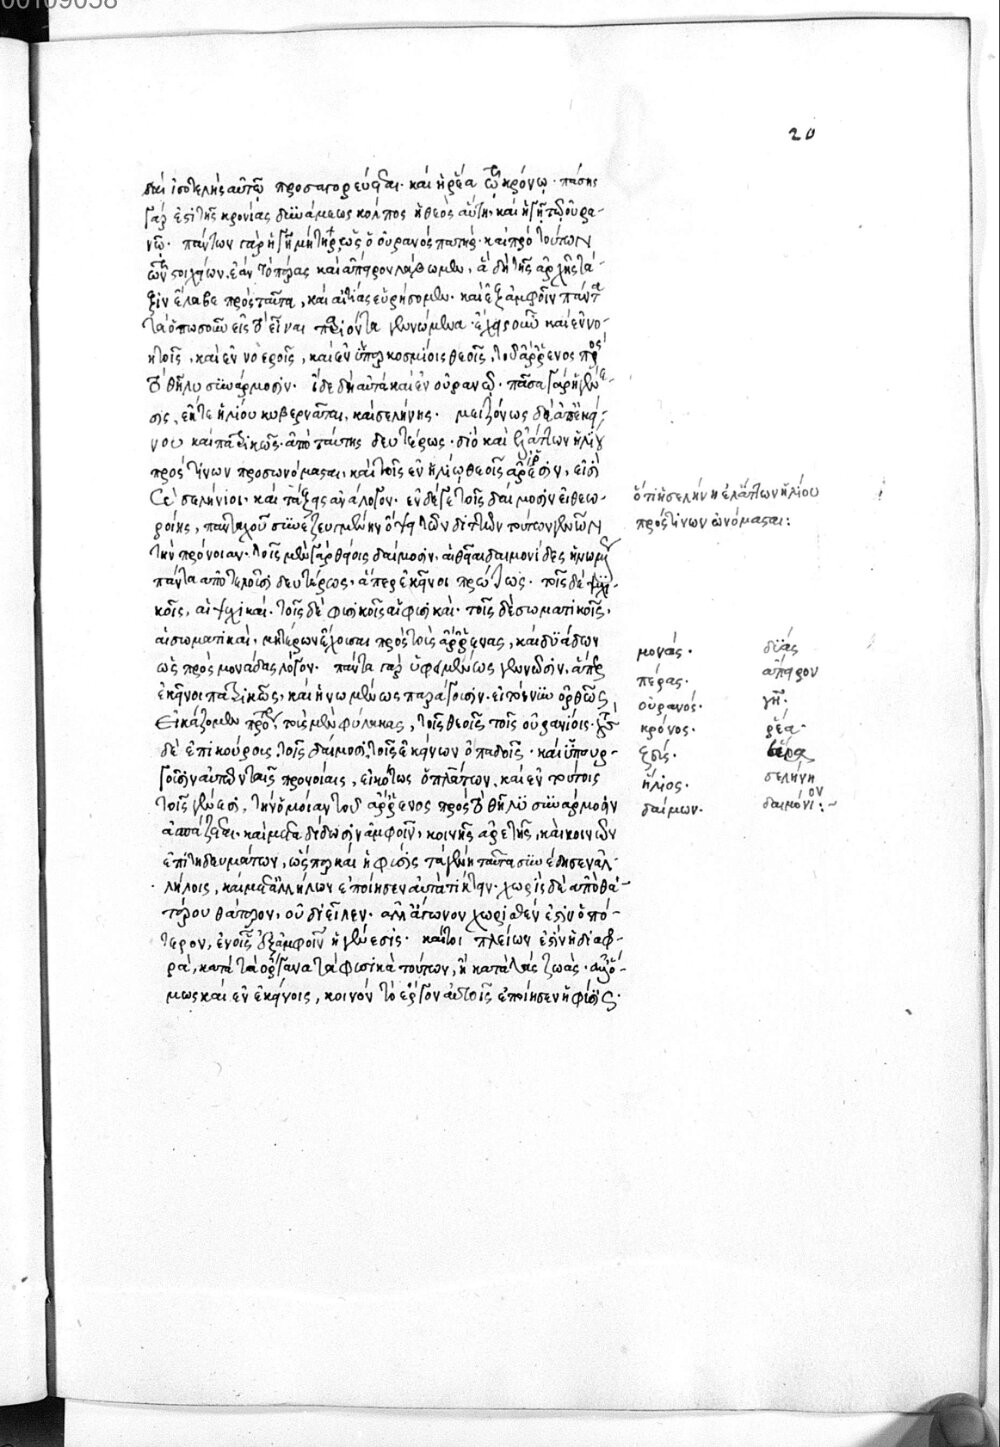 00109058
20
διὰ ἰσοτελὴς αὐτῷ προσαγορεύεται· καὶ ἡ ῥέα τῷ κρόνῳ· πάσης
γάρ ἐστι τῆς κρονίας δυνάμεως κόλπος ἡ θεὸς αὕτη· καὶ ἡ γῆ τῷ οὐρα-
νῷ· πάντων γὰρ ἡ γῆ μήτηρ, ὡς ὁ οὐρανὸς πατήρ· καὶ πρὸ τούτων
τῶν στοιχείων, ἐὰν τὸ πέρας καὶ ἄπειρον λάβωμεν, ἃ δὴ τῆς ἀρχῆς τά-
ξιν ἔλαβε πρὸς ταῦτα, καὶ αἰτίας εὑρήσομεν· καὶ ἐξ ἀμφοῖν πάντα
τὰ ὁπωσοῦν εἰς τὸ εἶναι παριόντα γεννώμενα· ἔχεις οὖν καὶ ἐν νο-
ητοῖς, καὶ ἐν νοεροῖς, καὶ ἐν ὑπερκοσμίοις θεοῖς, τοῦ ἄρρενος πρὸς
τὸ θῆλυ συνάρμοσιν· ἴδε δὴ αὐτὰ καὶ ἐν οὐρανῷ· πᾶσα γὰρ ἡ γένε-
σις, ἔκ τε ἡλίου κυβερνᾶται, καὶ σελήνης· μειζόνως δὴ ἀπ' ἐκεί-
νου καὶ πατρικῶς· ἀπὸ ταύτης δευτέρως· διὸ καὶ ἐλάττων ἥλιος
πρός τινων προσωνόμασται, καὶ τοῖς ἐν ἡλίῳ θεοῖς ἄρρεσιν, εἰσὶ
σεληνιοι· καὶ τάξεις ἀνάλογον· ἐν δέ γε τοῖς δαίμοσιν εἰ θεω-
ροίης, πανταχοῦ συνεζευγμένην ὄψει τῶν διττῶν τούτων γενῶν
τὴν πρόνοιαν· τοῖς μὲν γὰρ θείοις δαίμοσιν, αἱ θεῖαι δαιμονίδες ἡνωμένως
πάντα ἀποτελοῦσι δευτέρως, ἅπερ ἐκεῖνοι πρώτως· τοῖς δὲ ψυχι-
κοῖς, αἱ ψυχικαί· τοῖς δὲ φυσικοῖς αἱ φυσικαί· τοῖς δὲ σωματικοῖς,
αἱ σωματικαί, μητέρων ἔχουσαι πρὸς τοὺς ἄρρενας, καὶ δυάδων
ὡς πρὸς μονάδας λόγον· πάντα γὰρ ὑφειμένως γεννῶσιν, ἅπερ
ἐκεῖνοι πατρικῶς, καὶ ἡνωμένως παράγουσιν· εἰ τοίνυν ὀρθῶς
εἰκάζομεν πρότερον τοὺς μὲν φύλακας, τοῖς θεοῖς τοῖς οὐρανίοις· τοὺς
δὲ ἐπικούροις, τοῖς δαίμοσι, τοῖς ἐκείνων ὀπαδοῖς· καὶ ὑπουρ-
γοῦσιν αὐτῶν ταῖς προνοίαις, εἰκότως ὁ πλάτων, καὶ ἐν τούτοις
τοῖς γένεσι, τὴν ὁμοίαν τοῦ ἄρρενος πρὸς τὸ θῆλυ συνάρμοσιν
ἀσπάζεται· καὶ μεταδίδωσιν ἀμφοῖν, κοινῆς ἀρετῆς, καὶ κοινῶν
ἐπιτηδευμάτων, ὥσπερ καὶ ἡ φύσις τὰ γένη ταῦτα συνέδησεν ἀλ-
λήλοις, καὶ μετ' ἀλλήλων ἐποίησεν αὐτὰ τίκτειν· χωρὶς δὲ ἀπὸ θα-
τέρου θάτερον, οὐ διεῖλεν· ἀλλ' ἄγονον χωρισθέν ἐστιν ὁπό-
τερον, ἐν οἷς ἐξ ἀμφοῖν ἡ γένεσις· καίτοι πλείων ἐστὶν ἡ διαφ-
ρά, κατὰ τὰ ὄργανα τὰ φυσικὰ τούτων, ἢ κατὰ τὰς ζωάς· ἀλλ' ὅ-
μως καὶ ἐν ἐκείνοις, κοινὸν τὸ ἔργον αὐτοῖς ἐποίησεν ἡ φύσις·
ὅτι ἡ σελήνη ἐλάττων ἥλιου
πρός τινων ὠνόμασται:
μονάς· δυάς
πέρας· ἄπειρον
οὐρανός· γῆ·
κρόνος· ῥέα·
ζεύς· ἥρα
ἥλιος· σελήνη
δαίμων· δαιμόνιον:~